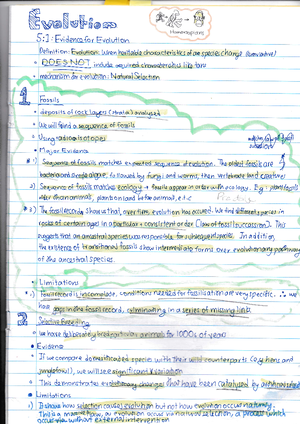 Evolution
5.1: Evidence for Evolution
Definition: Evolution: When heritable characteristics of one species change (cumulative)
DOES NOT include acquired characteristics like
mechanism for evolution: Natural Selection
1
Fossils
deposits of rock layers (strata) analysed
We will find a sequence of fossils
Using radioisotopes
Major Evidence
1) Sequence of fossils matches expected sequence of evolution. The oldest fossils are
bacteria and simple algae, followed by fungi and worms, then vertebrates (land creatures)
2) Sequence of fossils matches ecology → fossils appear in order with ecology. Eg: plant fossils
older than animals, plants on land before animal, etc.
3) The fossil records shows that, over time evolution has occured. We find different species in
rocks of certain ages in a particular + consistent order (law of fossil succession). This
suggests that an ancestral species was responsible for subsequent species. In addition,
the existence of transitional fossils show intermediate forms over evolutionary pathway
of the ancestral species.
Limitations
1) Fossil record is incomplete, conditions needed for fossilisation are very specific, ∴ we
have gaps in the fossil record, culminating in a series of missing links
2
Selective Breeding
We have deliberately bred particular animals for 1000s of years
Evidence
If we compare domesticated species with their wild counterparts (e.g. hens and
junglefowl), we will see significant variation
This demonstrates evolutionary changes that have been catalysed by artificial selection
Limitations
1) It shows how selection causes evolution but not how evolution occurs naturally.
This is a way of evolution occurs via natural selection, a process which
occurs w/o external intervention